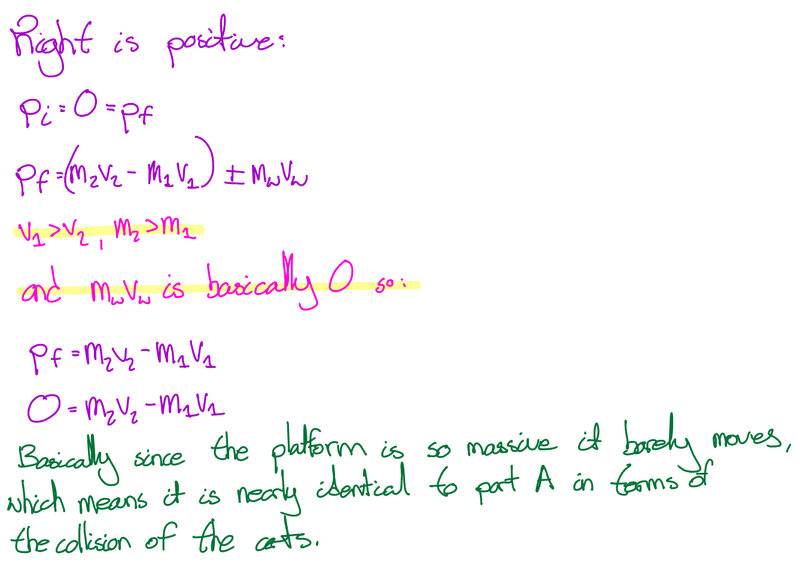 Right is positive:
Pi = 0 = Pf
Pf = (m₂v₂ - m₁v₁) ± MwVw
v₁ > v₂, m₂ > m₁
and mwVw is basically 0 so:
Pf = m₂v₂ - m₁v₁
0 = m₂v₂ - m₁v₁
Basically since the platform is so massive it barely moves,
which means it is nearly identical to part A in terms of
the collision of the carts.